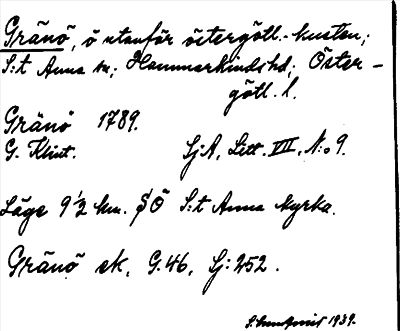 Gränö, ö utanför östergötl.-kusten;
S:t Anna sn; Hammarkinds hd; Öster-
götl. l.
Gränö 1789.
G. Klint. SjA, Litt. VII, N:o 9.
Läge 9 1/2 km. SÖ S:t Anna kyrka.
Gränö ek, G.46, Sj: 252.
1939.